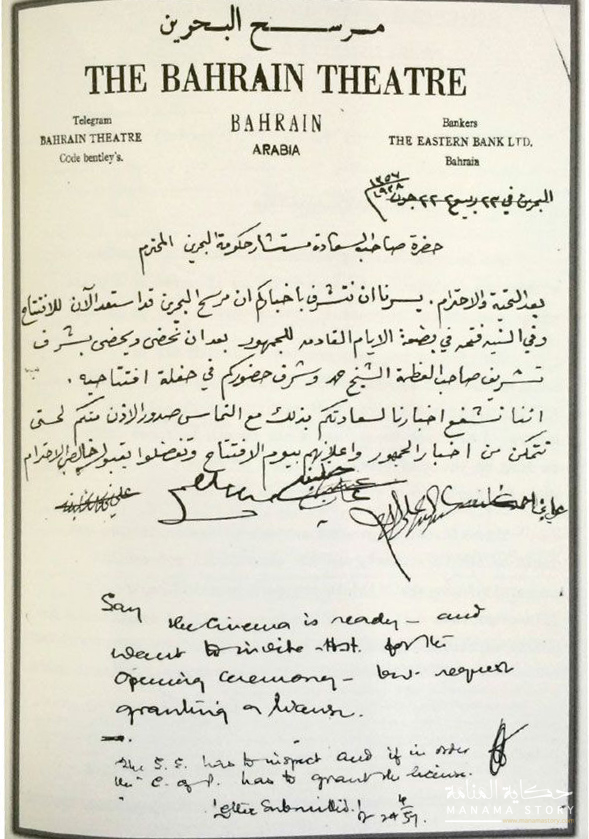 مرسح البحرين
THE BAHRAIN THEATRE
Telegram
BAHRAIN THEATRE
Code bentley's.
BAHRAIN
ARABIA
Bankers
THE EASTERN BANK LTD.
Bahrain
١٣٥٧
١٩٣٨
البحرين في ٢٣ ربيع ٢ - ٢٢ جون
حضرة صاحب السعادة مستشار حكومة البحرين المحترم
بعد التحية والاحترام. يسرنا ان نتشرف باخباركم ان مرسح البحرين قد استعد الآن للافتتاح
وفي النية فتحه في بضعة الايام القادمه للجمهور بعد ان نحضى ويحضى بشرف
تشريف صاحب العظمة الشيخ حمد وشرف حضوركم في حفلة افتتاحيه.
اننا نشفع اخبارنا لسعادتكم بذلك مع التماس صدور الاذن منكم لحتى
نتمكن من اخبار الجمهور واعلانهم بيوم الافتتاح وتفضلوا بقبول خالص الاحترام
Say the Cinema is ready – and
want to invite H.H. for the
opening ceremony – request
granting a license.
The S.E. has to inspect and if in order
the C. of P. has to grant the license.
letter Submitted.
حكاية المنامة
MANAMA STORY
www.manamastory.com